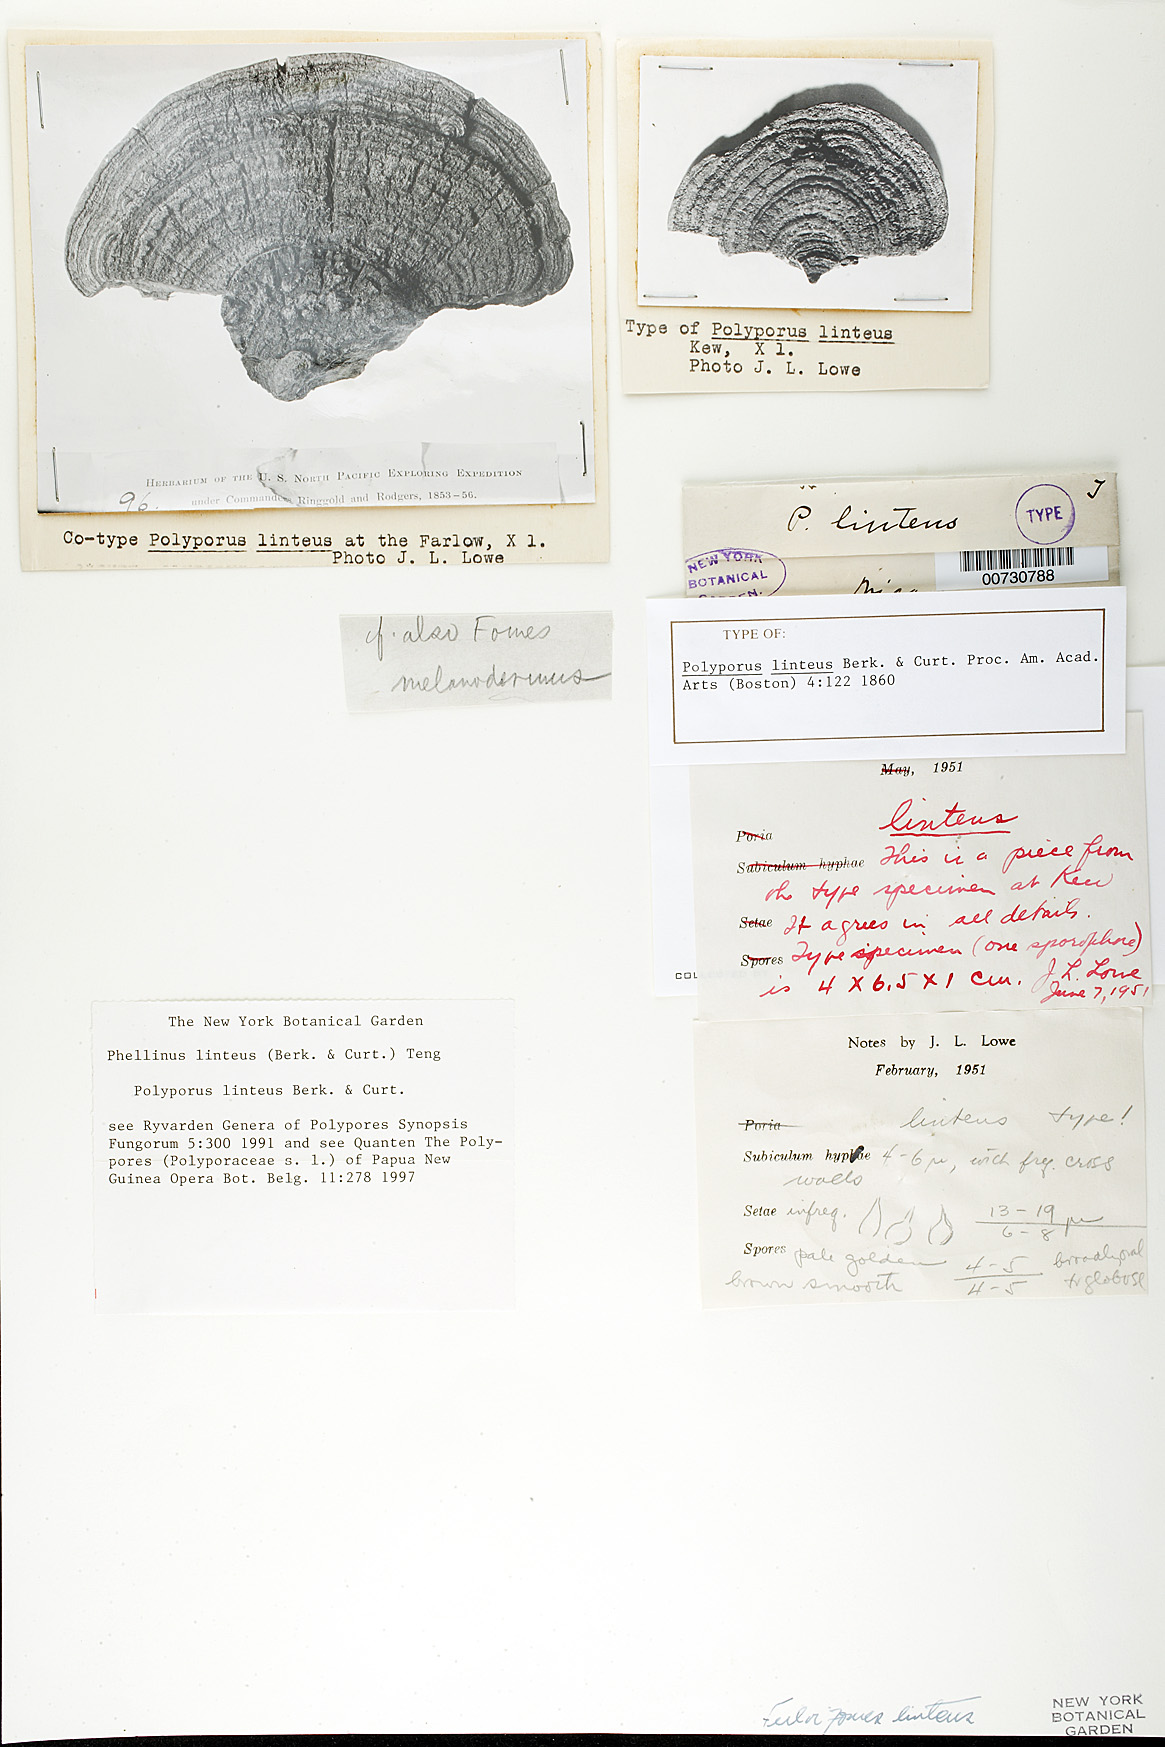 HERBARIUM OF THE U. S. NORTH PACIFIC EXPLORING EXPEDITION
under Commanders Ringgold and Rodgers, 1853-56.
96.
Co-type Polyporus linteus at the Farlow, X 1.
Photo J. L. Lowe
Type of Polyporus linteus
Kew, X 1.
Photo J. L. Lowe
P. linteus
TYPE
NEW YORK
BOTANICAL
GARDEN.
00730788
cf. also Fomes
melanodermus
TYPE OF:
Polyporus linteus Berk. & Curt. Proc. Am. Acad.
Arts (Boston) 4:122 1860
May, 1951
linteus
Poria
Subiculum hyphae This is a piece from
the type specimen at Kew
Setae It agrees in all details.
Spores Type specimen (one sporophore)
is 4 X 6.5 X 1 cm. J. L. Lowe
June 7, 1951
COL
The New York Botanical Garden
Phellinus linteus (Berk. & Curt.) Teng
Polyporus linteus Berk. & Curt.
see Ryvarden Genera of Polypores Synopsis
Fungorum 5:300 1991 and see Quanten The Poly-
pores (Polyporaceae s. l.) of Papua New
Guinea Opera Bot. Belg. 11:278 1997
Notes by J. L. Lowe
February, 1951
Poria linteus type!
Subiculum hyphae 4-6 µ, with freq. cross
walls
Setae infreq. 13-19
6-8 µ
Spores pale golden 4-5 broadly oval
brown smooth 4-5 to globose
linteus
NEW YORK
BOTANICAL
GARDEN